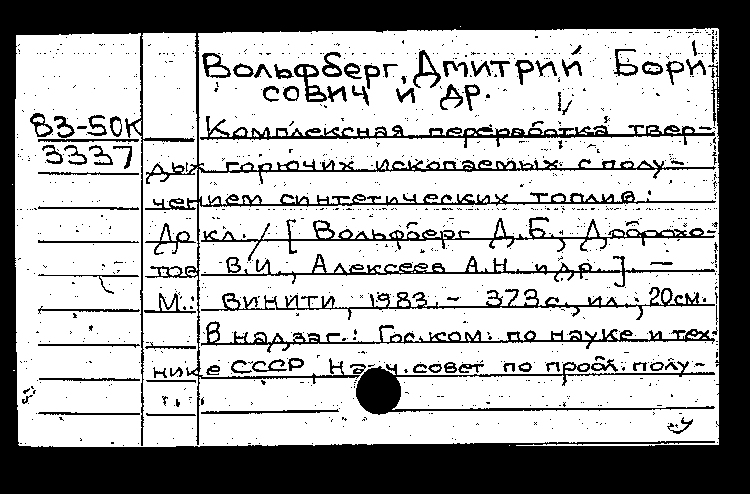 Вольфберг, Дмитрий Бори
сович и др.
83-50К
3337
Комплексная переработка твер-
дых горючих ископаемых с полу-
чением синтетических топлив:
Докл. / [ Вольфберг Д.Б., Доброхо-
тов В.И., Алексеев А.Н. и др. ]. —
М.: ВИНИТИ, 1983. - 373 с., ил.; 20 см.
В надзаг.: Гос. ком. по науке и тех-
нике СССР, Науч. совет по пробл. полу-